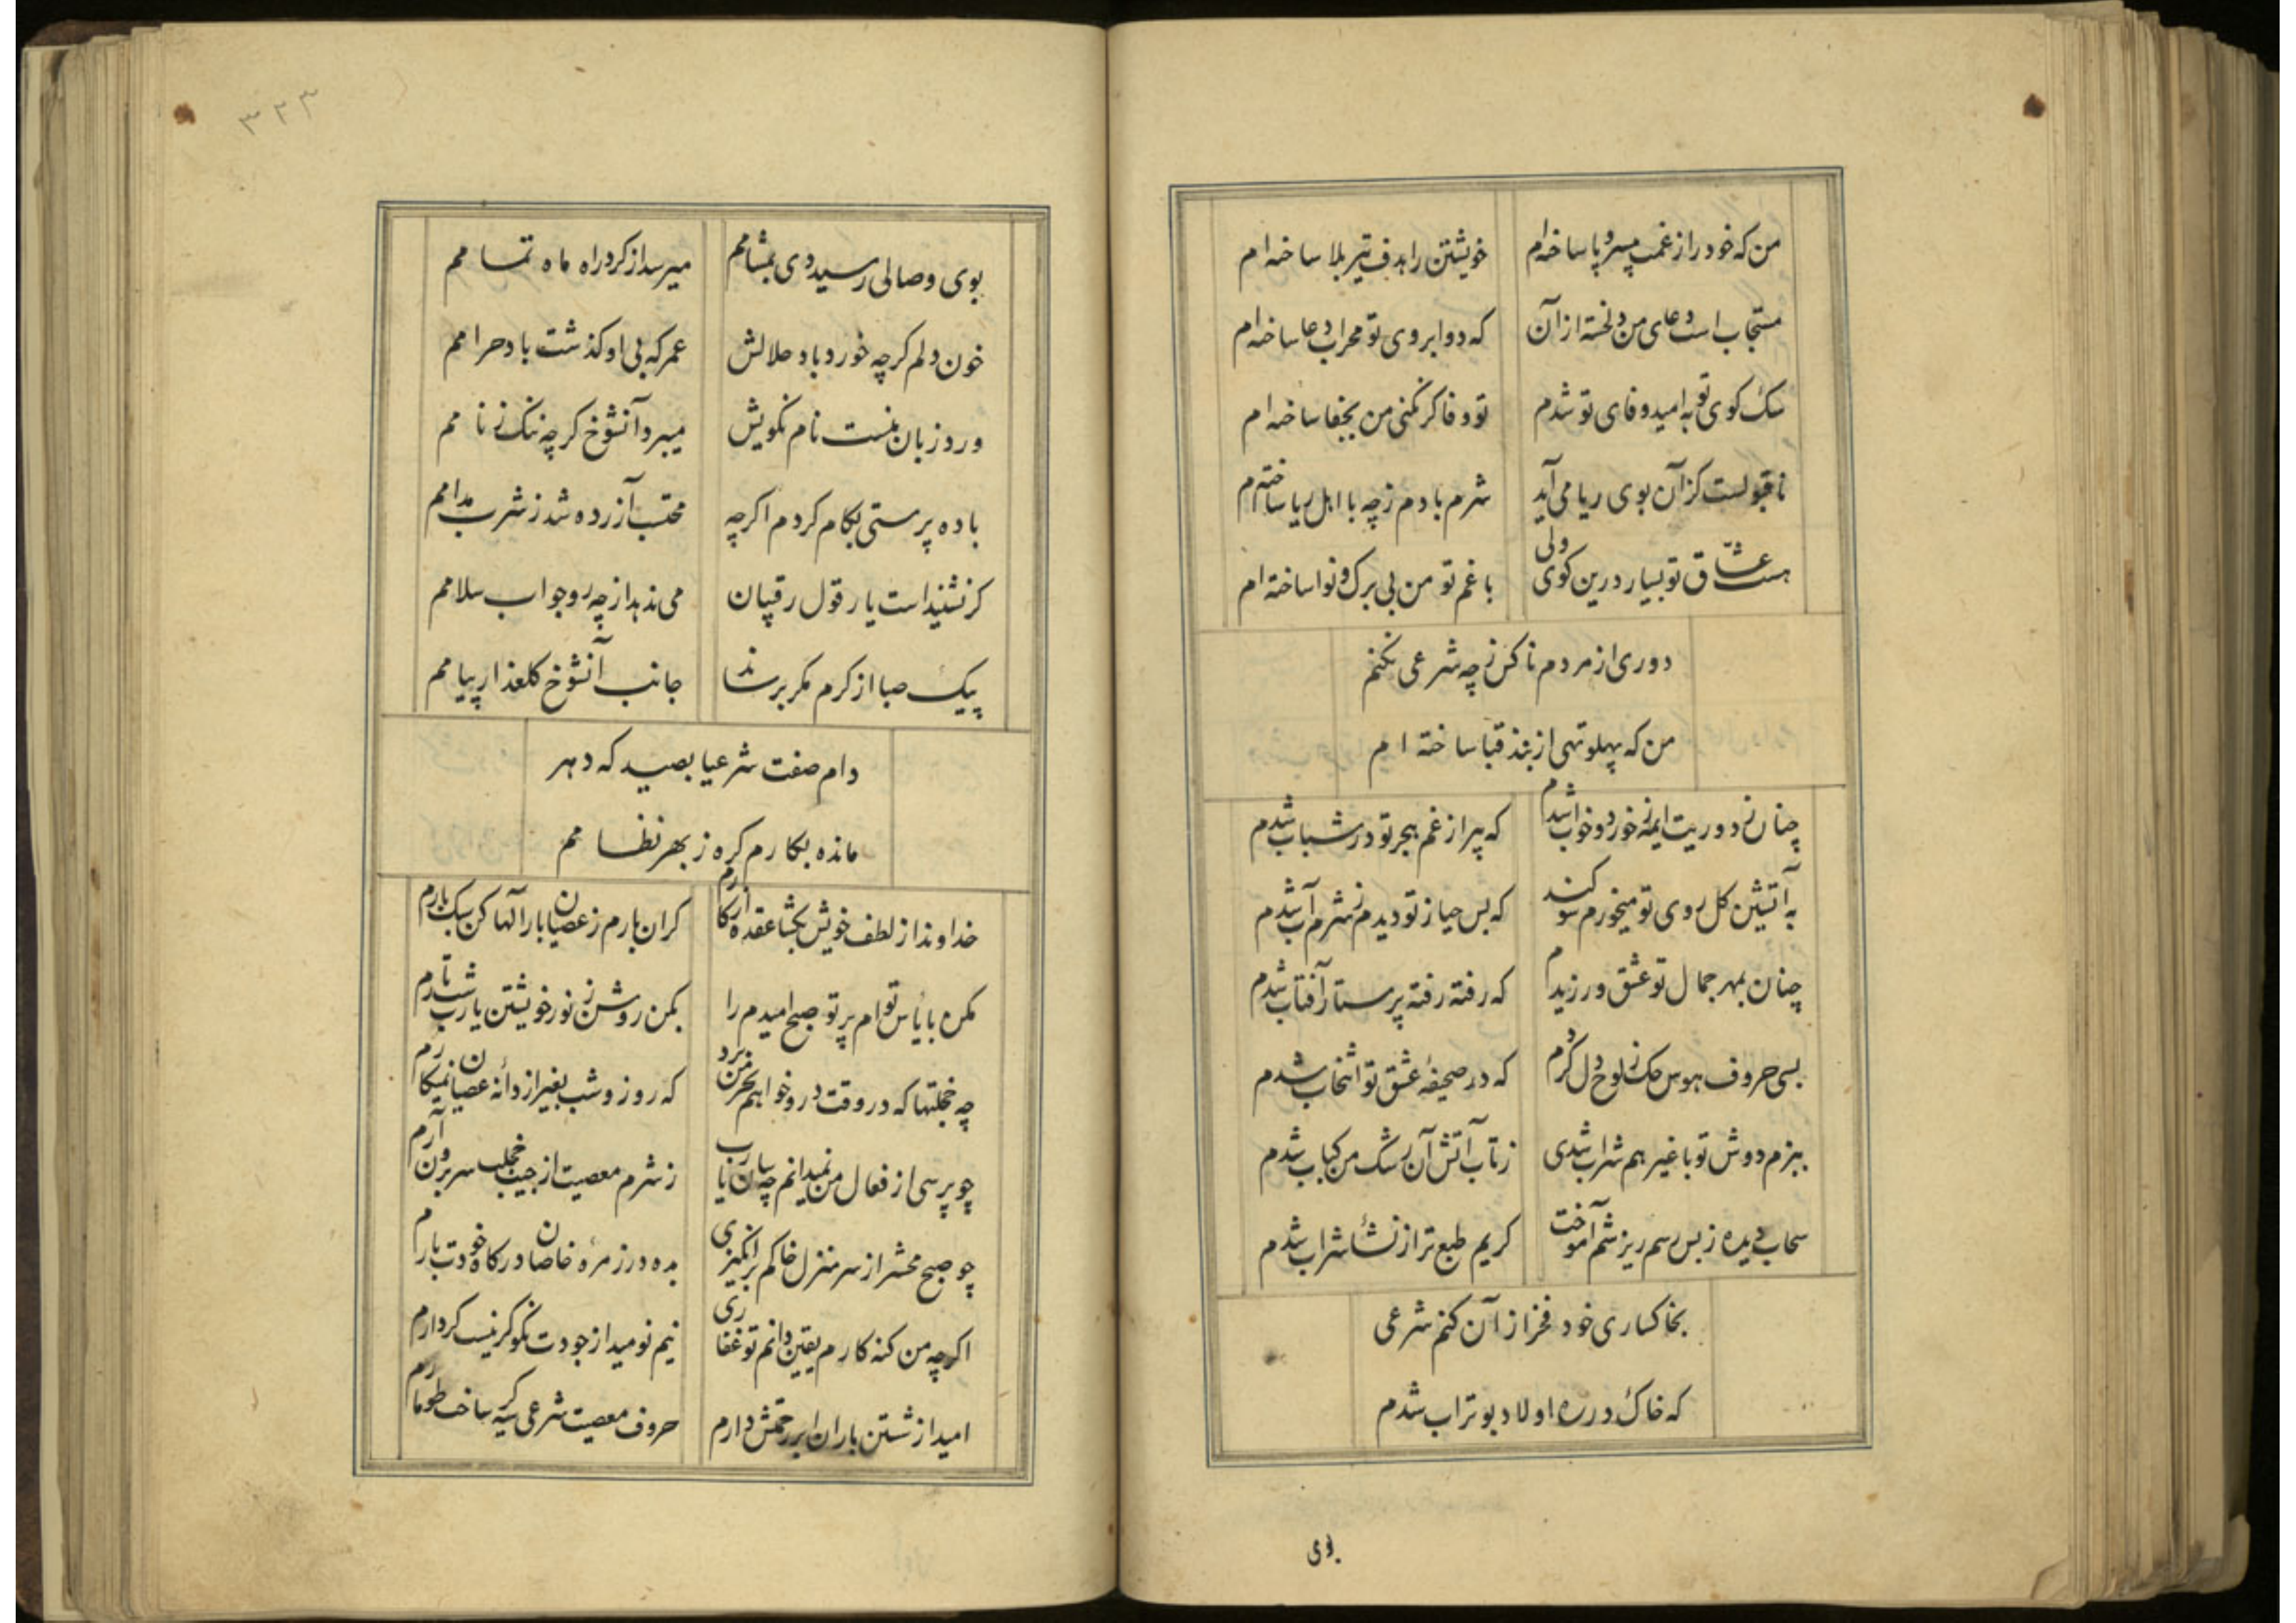 من که خود را ز غمت بیسر و پا ساخته‌ام خویشتن را هدف تیر بلا ساخته‌ام
مستجاب است دعای من دلخسته از آن که دو ابروی تو محراب دعا ساخته‌ام
سک کوی تو به امید وفای تو شدم تو وفا کر نکنی من بجفا ساخته‌ام
ناقبولست کزان بوی ریا می‌آید شرم بادم ز چه با اهل ریا ساخته‌ام
هست عشاق تو بسیار درین کوی ولی با غم تو من بی برک و نوا ساخته‌ام
دوری از مردم ناکس ز چه شرعی نکنم
من که پهلو تهی از بند قبا ساخته ام
چنان ز دوریت ایمه ز خورد و خواب شدم که پیر از غم هجر تو در شباب شدم
به آتشین کل روی تو میخورم سوکند که بس حیا ز تو دیدم ز شرم آب شدم
چنان بمهر جمال تو عشق ورزیدم که رفته رفته پرستار آفتاب شدم
بسی حروف هوس حک ز لوح دل کردم که در صحیفهٔ عشق تو انتخاب شدم
ببزم دوش تو با غیر هم شراب شدی ز تاب آتش آن رشک من کباب شدم
سحاب دیده ز بس رسم ریزشم آموخت کریم طبع تر از نشأ شراب شدم
بخاکساری خود فخر از آن کنم شرعی
که خاک در ره اولاد بوتراب شدم
بوی
۳۲۳
بوی وصالی رسید دی بمشامم میرسد از کرد راه ماه تمامم
خون دلم کرچه خورد باد حلالش عمر که بی او کذشت باد حرامم
ورد زبان منست نام نکویش میبرد آنشوخ کرچه ننک ز نامم
باده پرستی بکام کردم اکرچه محتسب آزرده شد ز شرب مدامم
کر نشنیداست یار قول رقیبان می ندهد از چه رو جواب سلامم
پیک صبا از کرم مکر برساند جانب آنشوخ کلعذار پیامم
دام صفت شرعیا بصید که دهر
مانده بکارم کره ز بهر نظامم
خداوندا ز لطف خویش بکشا عقده از کارم کران بارم ز عصیان بارالها کن سبک بارم
مکن با یأس توام پرتو صبح امیدم را بکن روشن ز نور خویشتن یارب شب تارم
چه خجلتها که در وقت درو خواهم بحرمن برد که روز و شب بغیر از دانه عصیان نمیکارم
چو پرسی از فعال من نمیدانم چه سان یارب ز شرم معصیت از جیب خجلت سر برون آرم
چو صبح محشر از سر منزل خاکم برانکیزی بده در زمرهٔ خاصان درکاه خودت بارم
اکرچه من کنه کارم یقین دانم تو غفاری نیم نومید از جودت نکو کر نیست کردارم
امید از شستن باران ابر رحمتش دارم حروف معصیت شرعی سیه کر ساخت طومارم